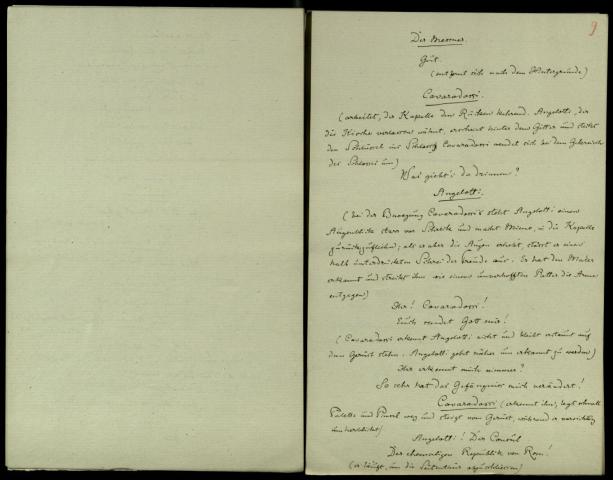 9
Der Messner.
Gut.
(entfernt sich nach dem Hintergrunde)
Cavaradossi.
(arbeitet, der Kapelle den Rücken kehrend. Angelotti, der
die Kirche verlassen wähnt, erscheint hinter dem Gitter und steckt
den Schlüssel ins Schloss; Cavaradossi wendet sich bei dem Geräusch
des Schlosses um)
Was giebt's da drinnen?
Angelotti.
(bei der Bewegung Cavaradossi's steht Angelotti einen
Augenblick starr vor Schreck und macht Miene, in die Kapelle
zurückzuflüchten; als er aber die Augen erhebt, stösst er einen
halb unterdrückten Schrei der Freude aus. Er hat den Maler
erkannt und streckt ihm wie einem unverhofften Retter die Arme
entgegen)
Ihr! Cavaradossi!
Euch sendet Gott mir!
(Cavaradossi erkennt Angelotti nicht und bleibt erstaunt auf
dem Gerüst stehen. Angelotti geht näher um erkannt zu werden)
Ihr erkennt mich nimmer?
So sehr hat das Gefängniss mich verändert!
Cavaradossi (erkennt ihn, legt schnell
Palette und Pinsel weg und steigt vom Gerüst, während er vorsichtig
umherblickt)
Angelotti! Der Consul
Der ehemaligen Republik von Rom!
(er läuft, um die Seitenthür abzuschliessen)